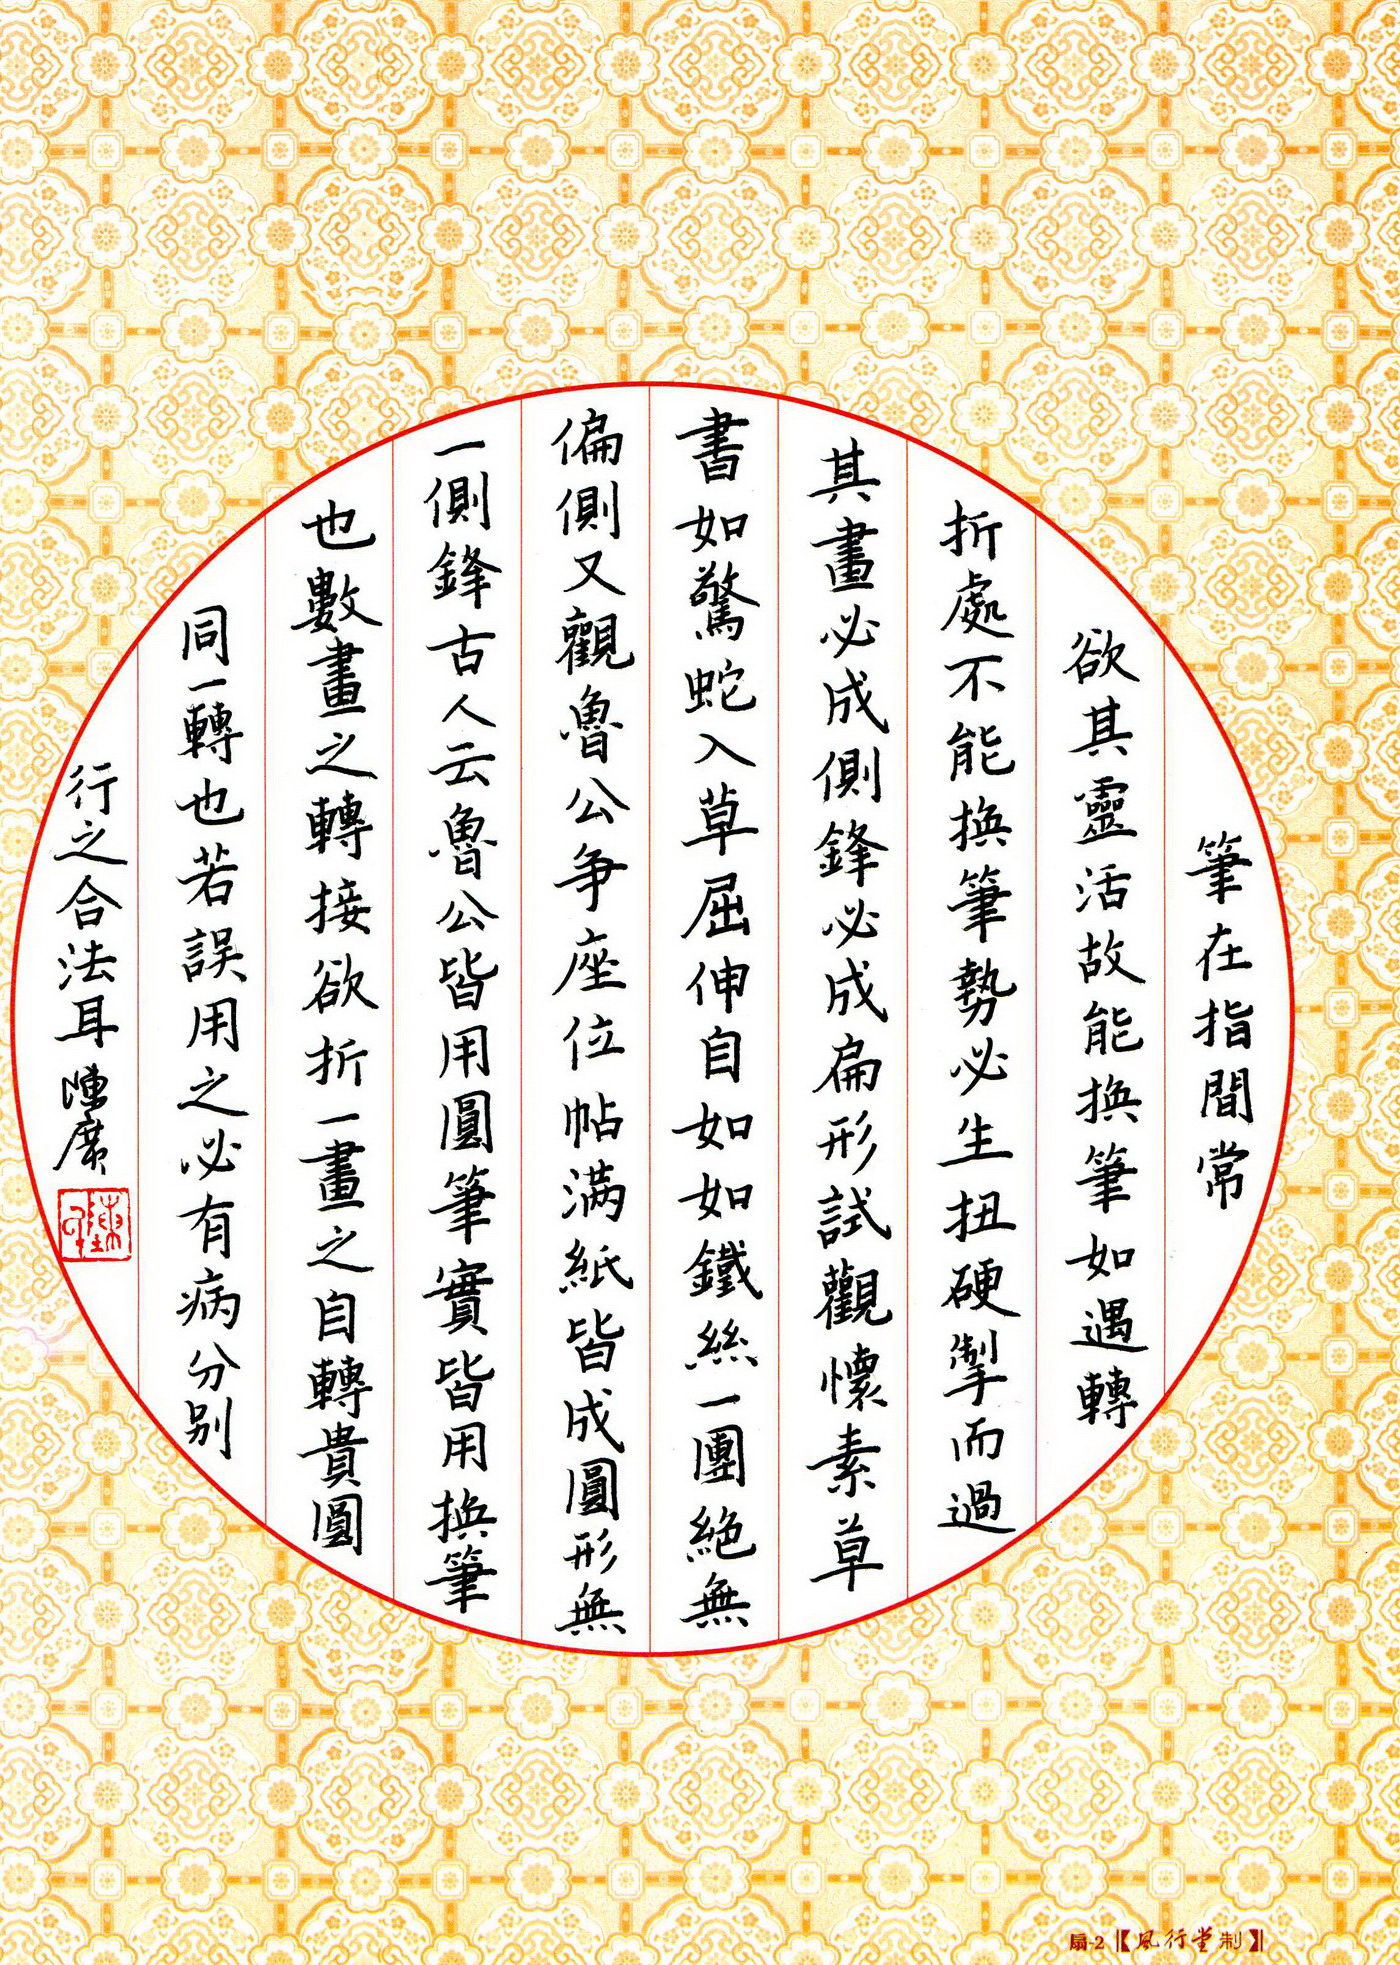 筆在指間常
欲其靈活故能換筆如遇轉
折處不能換筆勢必生扭硬掣而過
其畫必成側鋒必成扁形試觀懷素草
書如驚蛇入草屈伸自如如鐵絲一團絕無
偏側又觀魯公争座位帖满紙皆成圓形無
一側鋒古人云魯公皆用圓筆實皆用換筆
也數畫之轉接欲折一畫之自轉貴圓
同一轉也若誤用之必有病分别
行之合法耳 陳廣
扇-2【風行堂制】